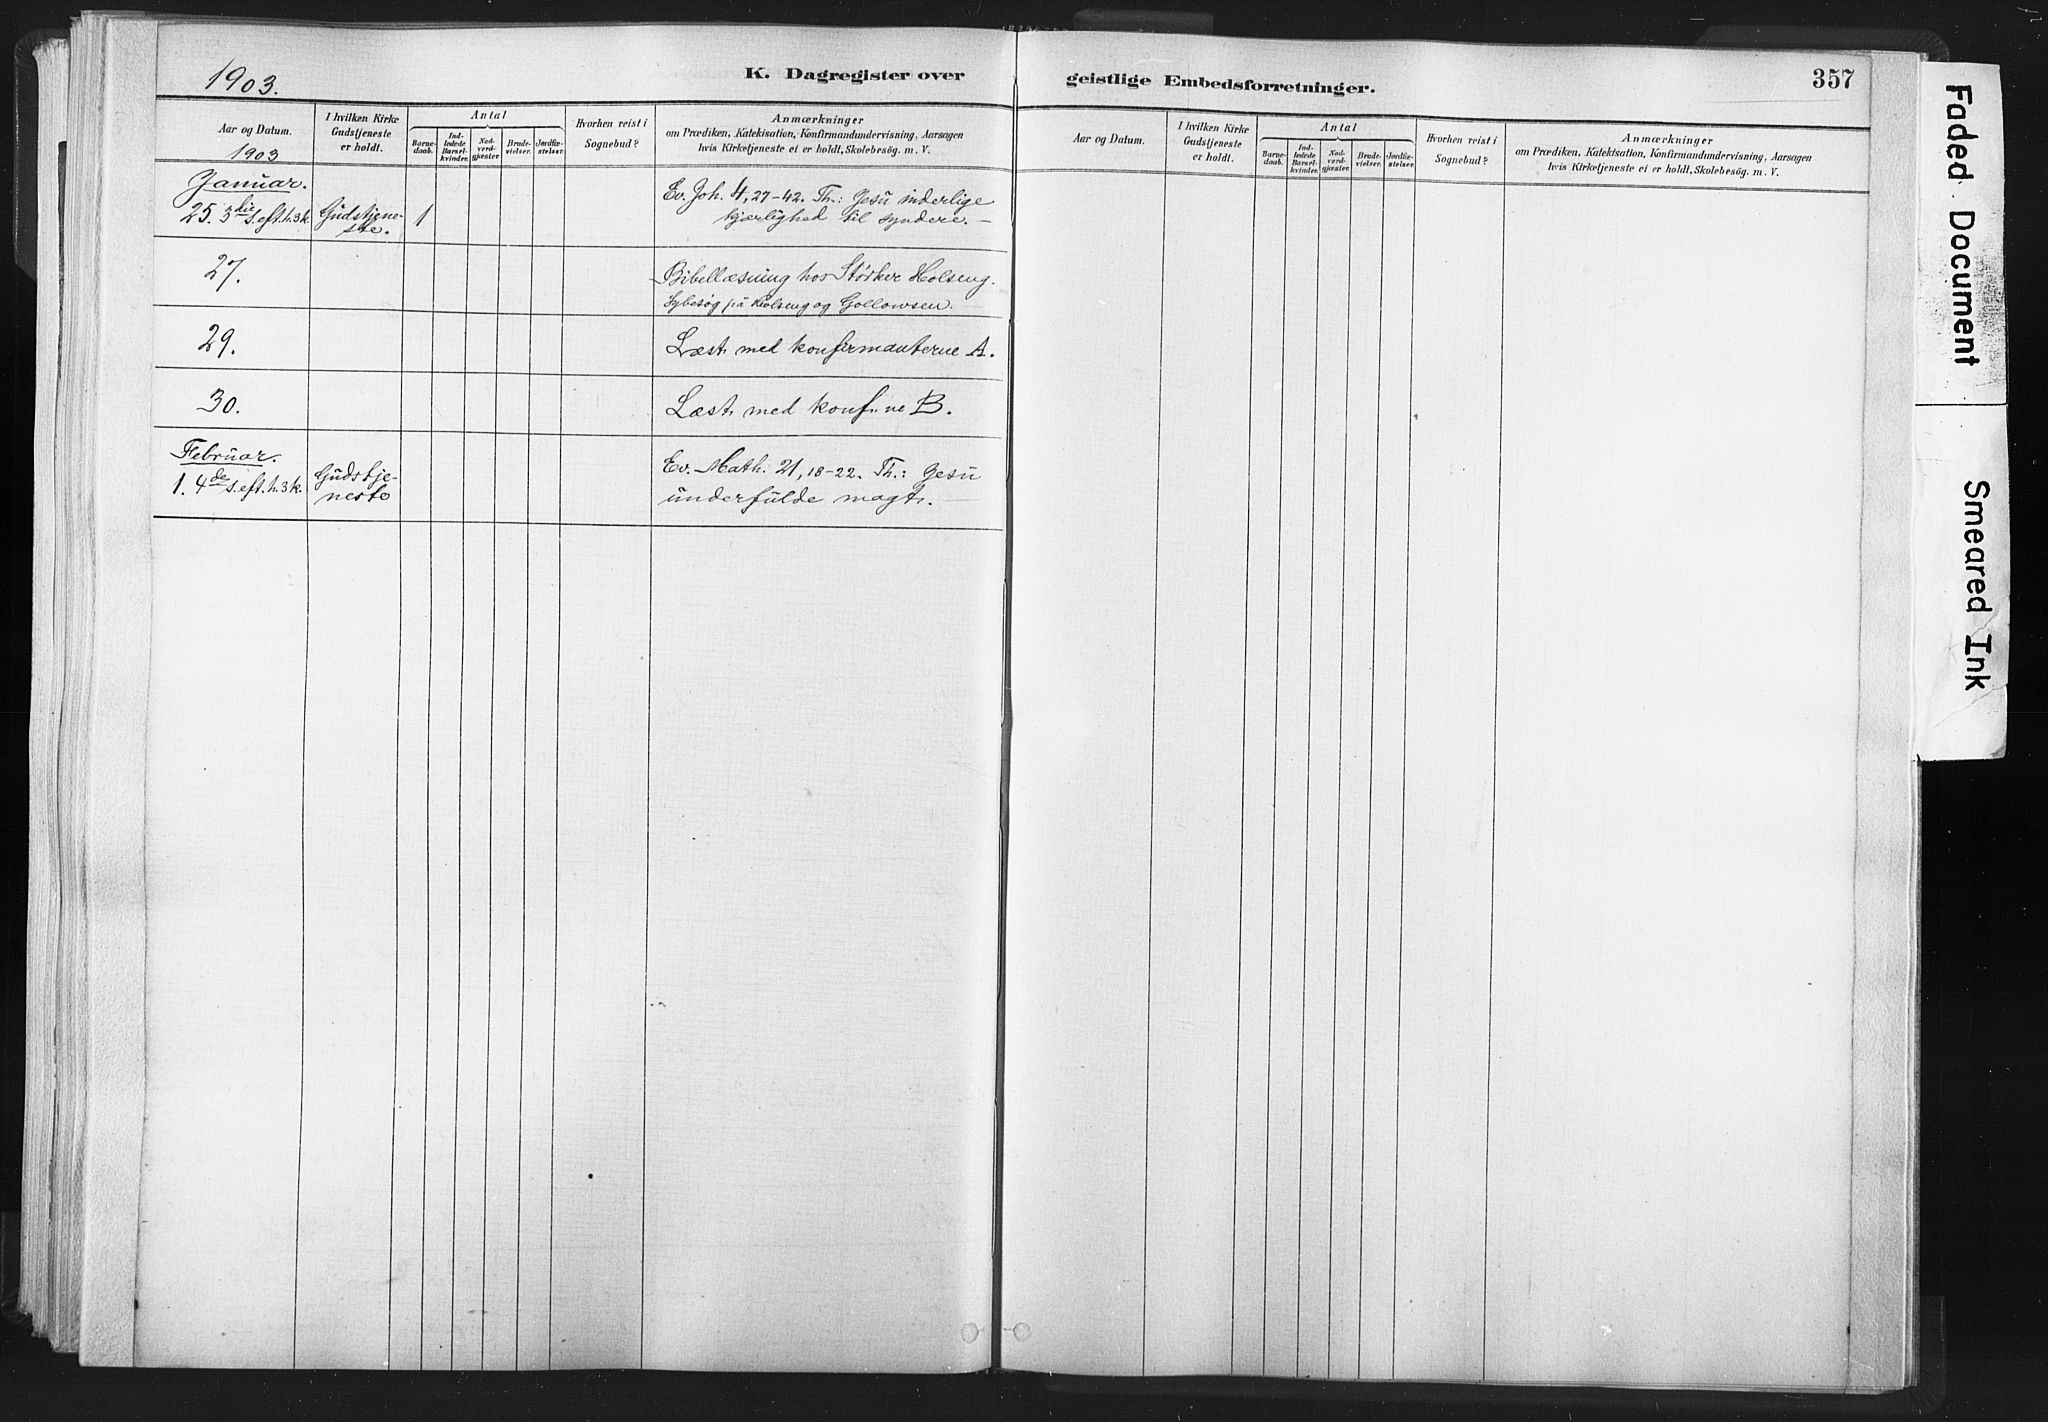 1903.
K. Dagregister over
Aar og Datum.
1903
I hvilken Kirke
Gudstjeneste
er holdt.
Antal
Barne-
daab.
Ind-
ledede
Barsel-
kvinder.
Nad-
verd-
gjester
Brude-
vielser.
Jordfæ-
stelser.
Hvorhen reist i
Sognebud?
Anmærkninger
om Prædiken, Katekisation, Konfirmandundervisning, Aarsagen
hvis Kirketjeneste ei er holdt, Skolebesøg. m. V.
Januar.
25. 3die s. eft. h. 3 k.
Gudstjene-
ste.
1
Ev. Joh. 4, 27-42. Th.: Jesu inderlige
kjærlighed til syndere. —
27.
Bibellæsning hos Størker Holseng.
Sybesøg på Holseng og Gollowsen.
29.
Læst med konfirmanterne A.
30.
Læst med konf. ne B.
Februar.
1. 4de s. eft. h. 3 k.
Gudstje-
neste
Ev. Math. 21, 18-22. Th.: Jesu
underfulde magt. —
geistlige Embedsforretninger.
357
Aar og Datum.
I hvilken Kirke
Gudstjeneste
er holdt.
Antal
Barne-
daab.
Ind-
ledede
Barsel-
kvinder.
Nad-
verd-
gjester
Brude-
vielser.
Jordfæ-
stelser.
Hvorhen reist i
Sognebud?
Anmærkninger
om Prædiken, Katekisation, Konfirmandundervisning, Aarsagen
hvis Kirketjeneste ei er holdt, Skolebesøg. m. V.
Faded Document
Smeared Ink